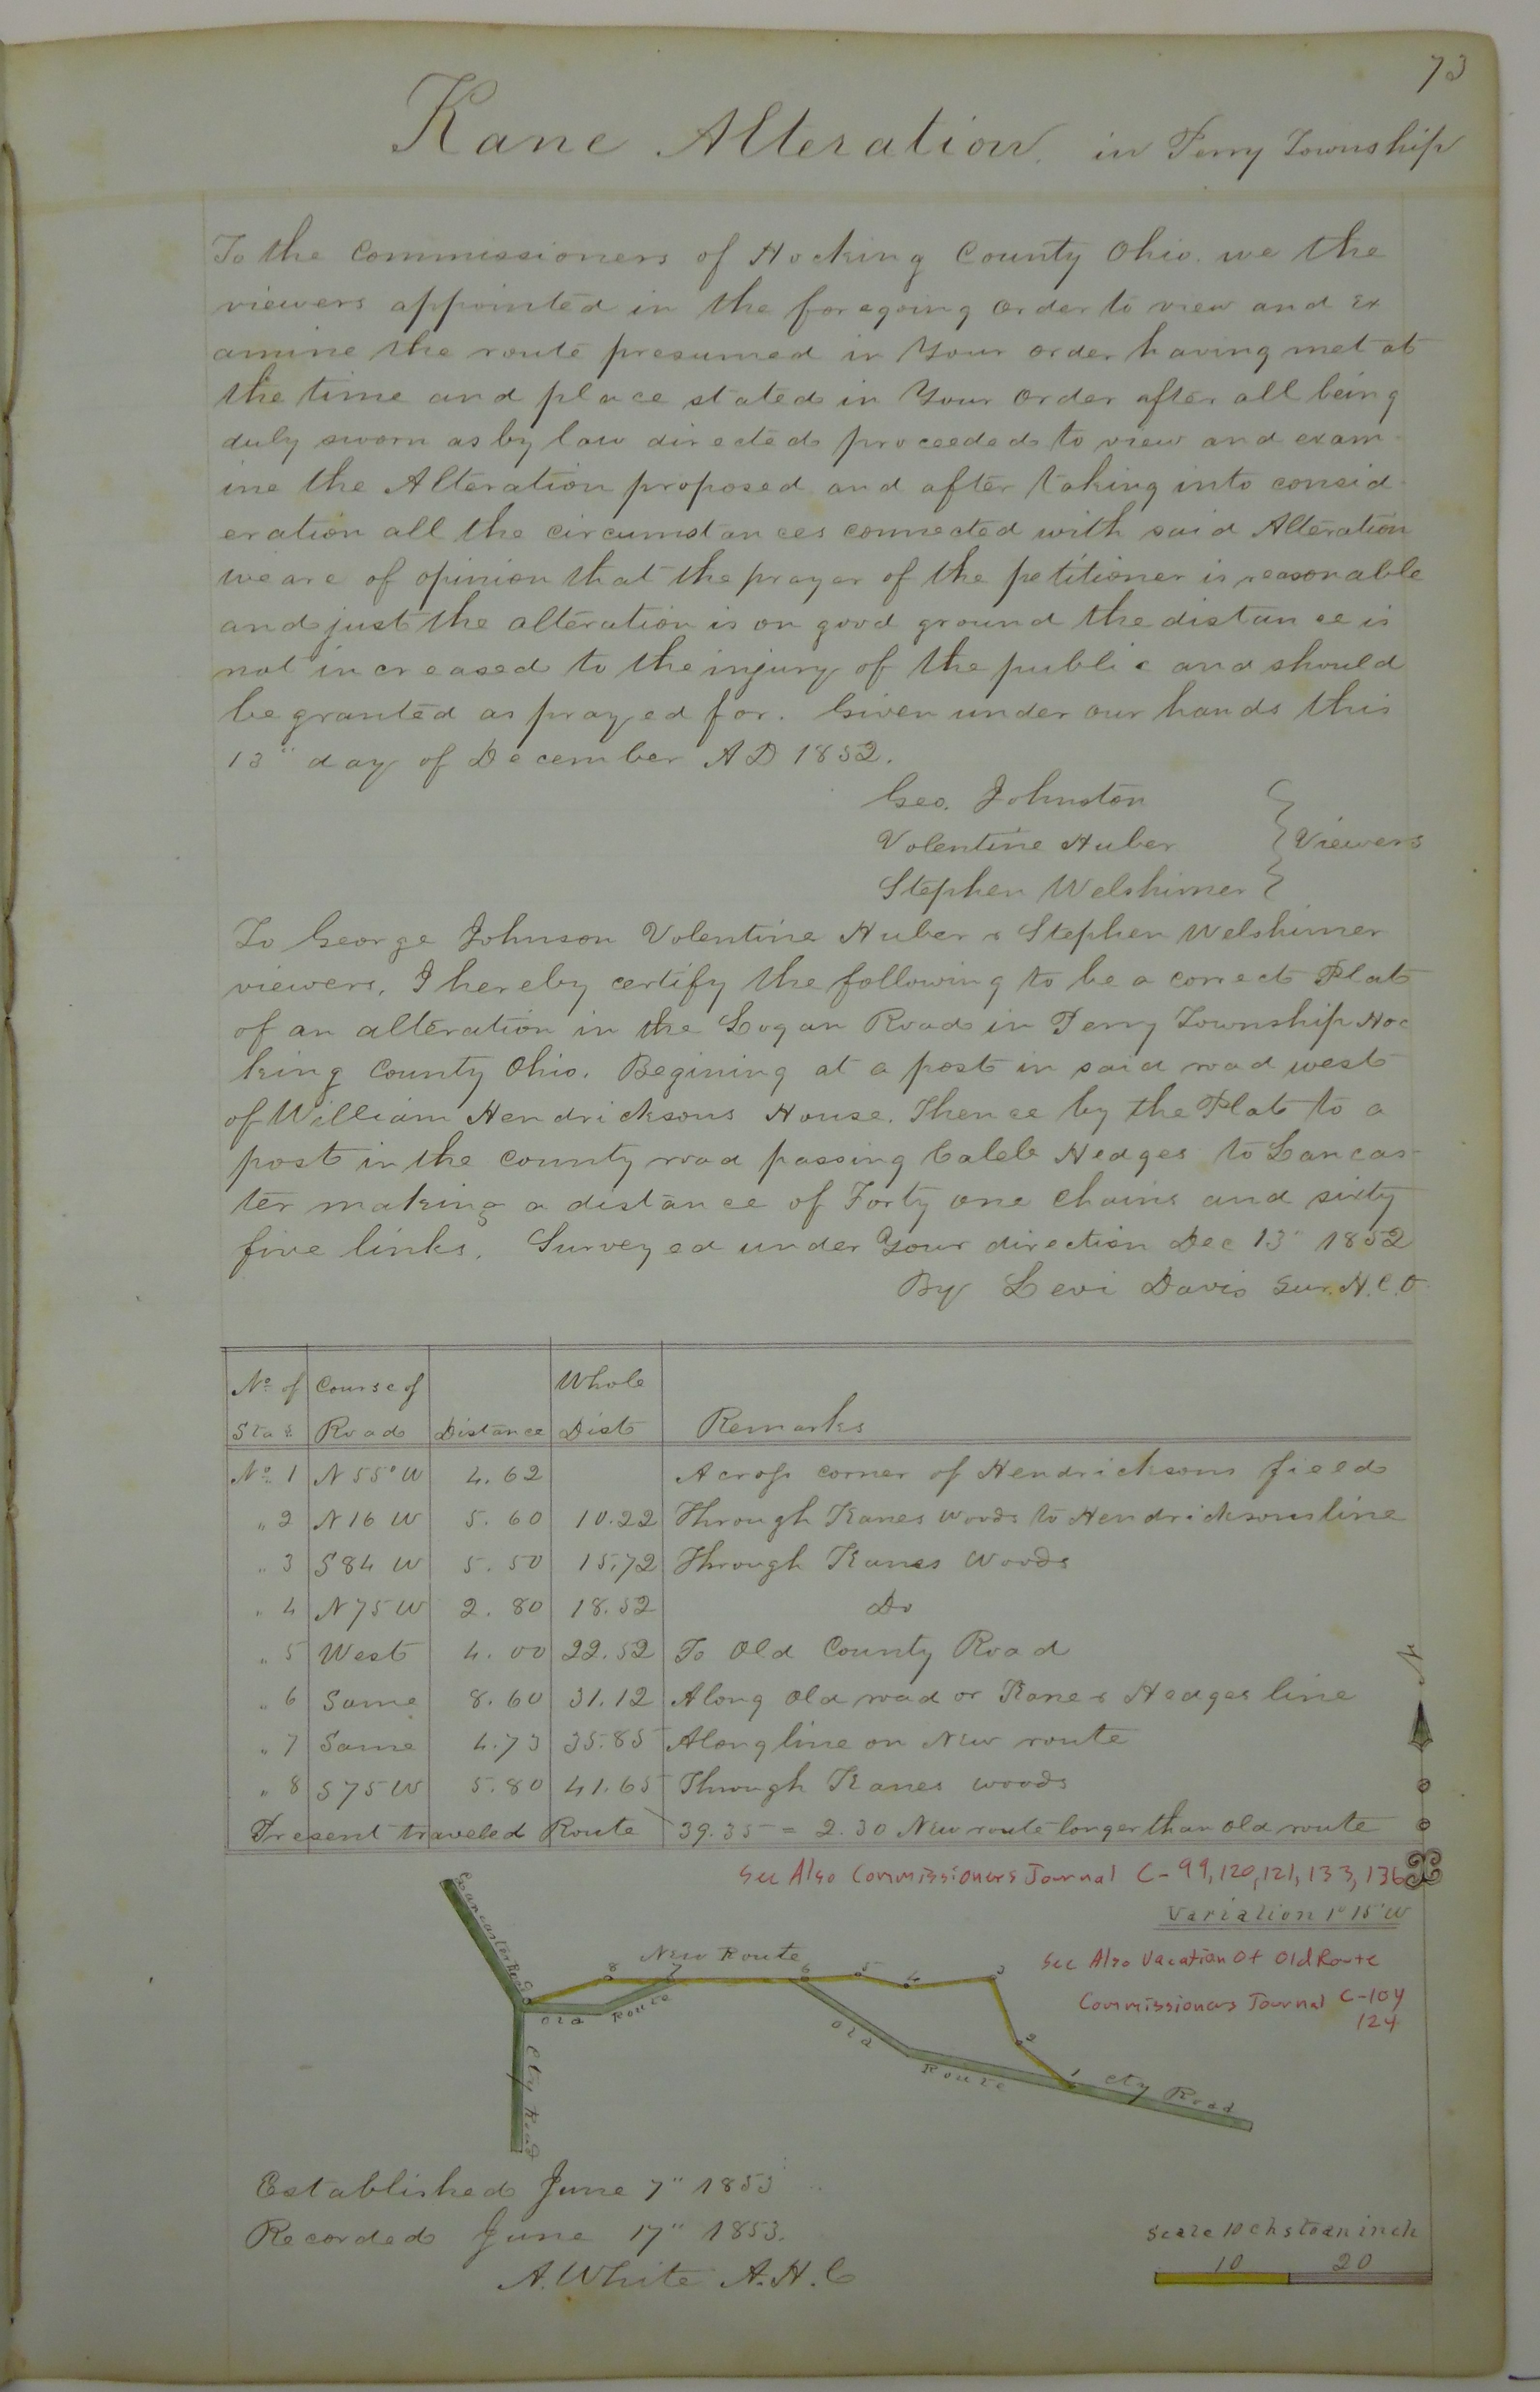 73
Kane Alteration in Perry Township
To the Commissioners of Hocking County Ohio. we the
viewers appointed in the foregoing order to view and Ex
amine the route presumed in Your order having met at
the time and place stated in Your Order after all being
duly sworn as by law directed proceeded to view and exam-
ine the Alteration proposed and after taking into consid-
eration all the circumstances connected with said Alteration
we are of opinion that the prayer of the petitioner is reasonable
and just the alteration is on good ground the distance is
not increased to the injury of the public and should
be granted as prayed for. Given under our hands this
13" day of December AD 1852.
Geo. Johnston
Volentine Huber } Viewers
Stephen Welshimer
To George Johnson Volentine Huber & Stephen Welshimer
viewers, I hereby certify the following to be a correct Plat
of an alteration in the Logan Road in Perry Township Hoc
king County Ohio. Begining at a post in said road west
of William Hendricksons House. Thence by the Plat to a
post in the county road passing Caleb Hedges to Lancas-
ter making a distance of Forty one Chains and sixty
five links. Surveyed under Your direction Dec 13" 1852
By Levi Davis Sur. H.C.O.
No. of Stas. | Course of Road | Distance | Whole Dist | Remarks
No. 1 | N 55° W | 4.62 | | Across corner of Hendricksons field
" 2 | N 16 W | 5.60 | 10.22 | Through Kanes Woods to Hendricksons line
" 3 | S 84 W | 5.50 | 15.72 | Through Kanes Woods
" 4 | N 75 W | 2.80 | 18.52 | Do
" 5 | West | 4.00 | 22.52 | To Old County Road
" 6 | Same | 8.60 | 31.12 | Along old road or Kane & Hedges line
" 7 | Same | 4.73 | 35.85 | Along line on New route
" 8 | S 75 W | 5.80 | 41.65 | Through Kanes woods
Present traveled Route 39.35 = 2.30 New route longer than old route
See Also Commissioners Journal C-99, 120, 121, 133, 136
Variation 1° 15' W
See Also Vacation Of Old Route
Commissioners Journal C-104
124
Lancaster Road
New Route
9 8 7 6 5 4 3 2 1
Old Route
Old Route
Cty Road
Cty Road
Established June 7" 1853
Recorded June 17" 1853.
A. White A.H.C
Scale 10 chs to an inch
10 20